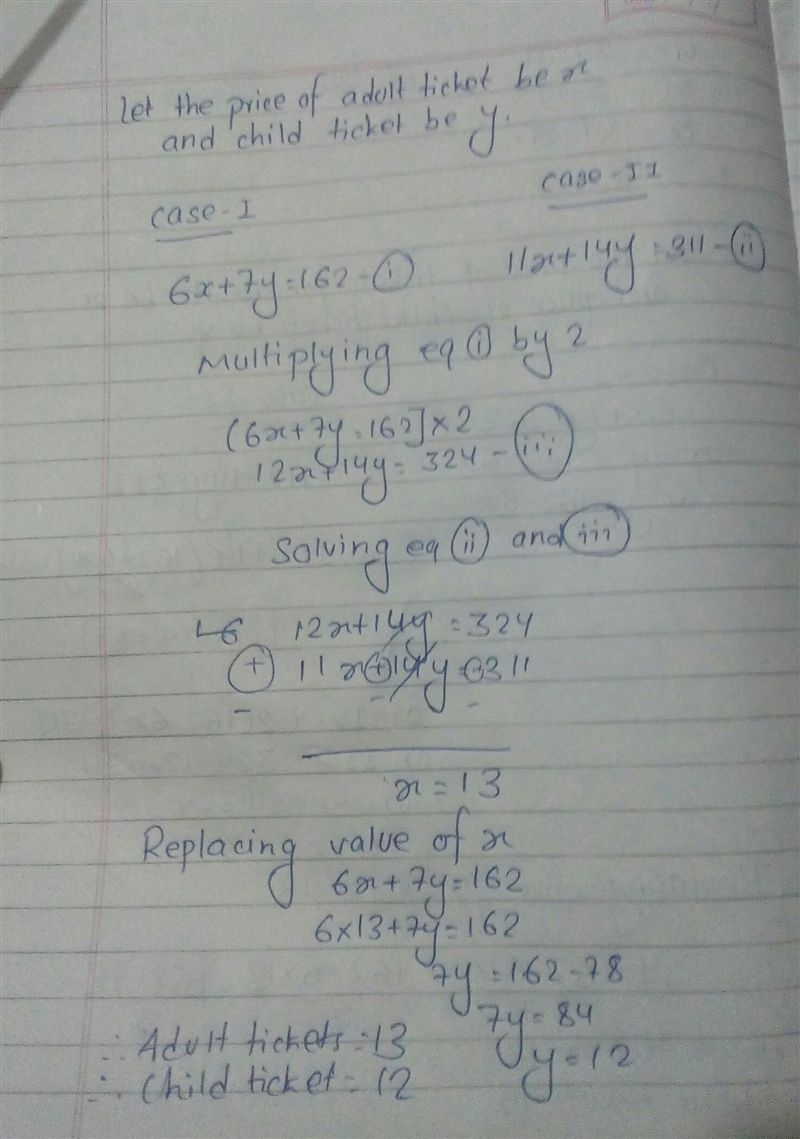 Let the price of adult ticket be x
and child ticket be y.
case-I
case-II
6x+7y=162-(i)
11x+14y=311-(ii)
Multiplying eq (i) by 2
(6x+7y=162]×2
12x+14y=324-(iii)
Solving eq (ii) and (iii)
12x+14y=324
(+) 11x(+)14y=311
- - -
x=13
Replacing value of x
6x+7y=162
6×13+7y=162
7y=162-78
7y=84
y=12
∴ Adult tickets=13
∴ Child ticket=12